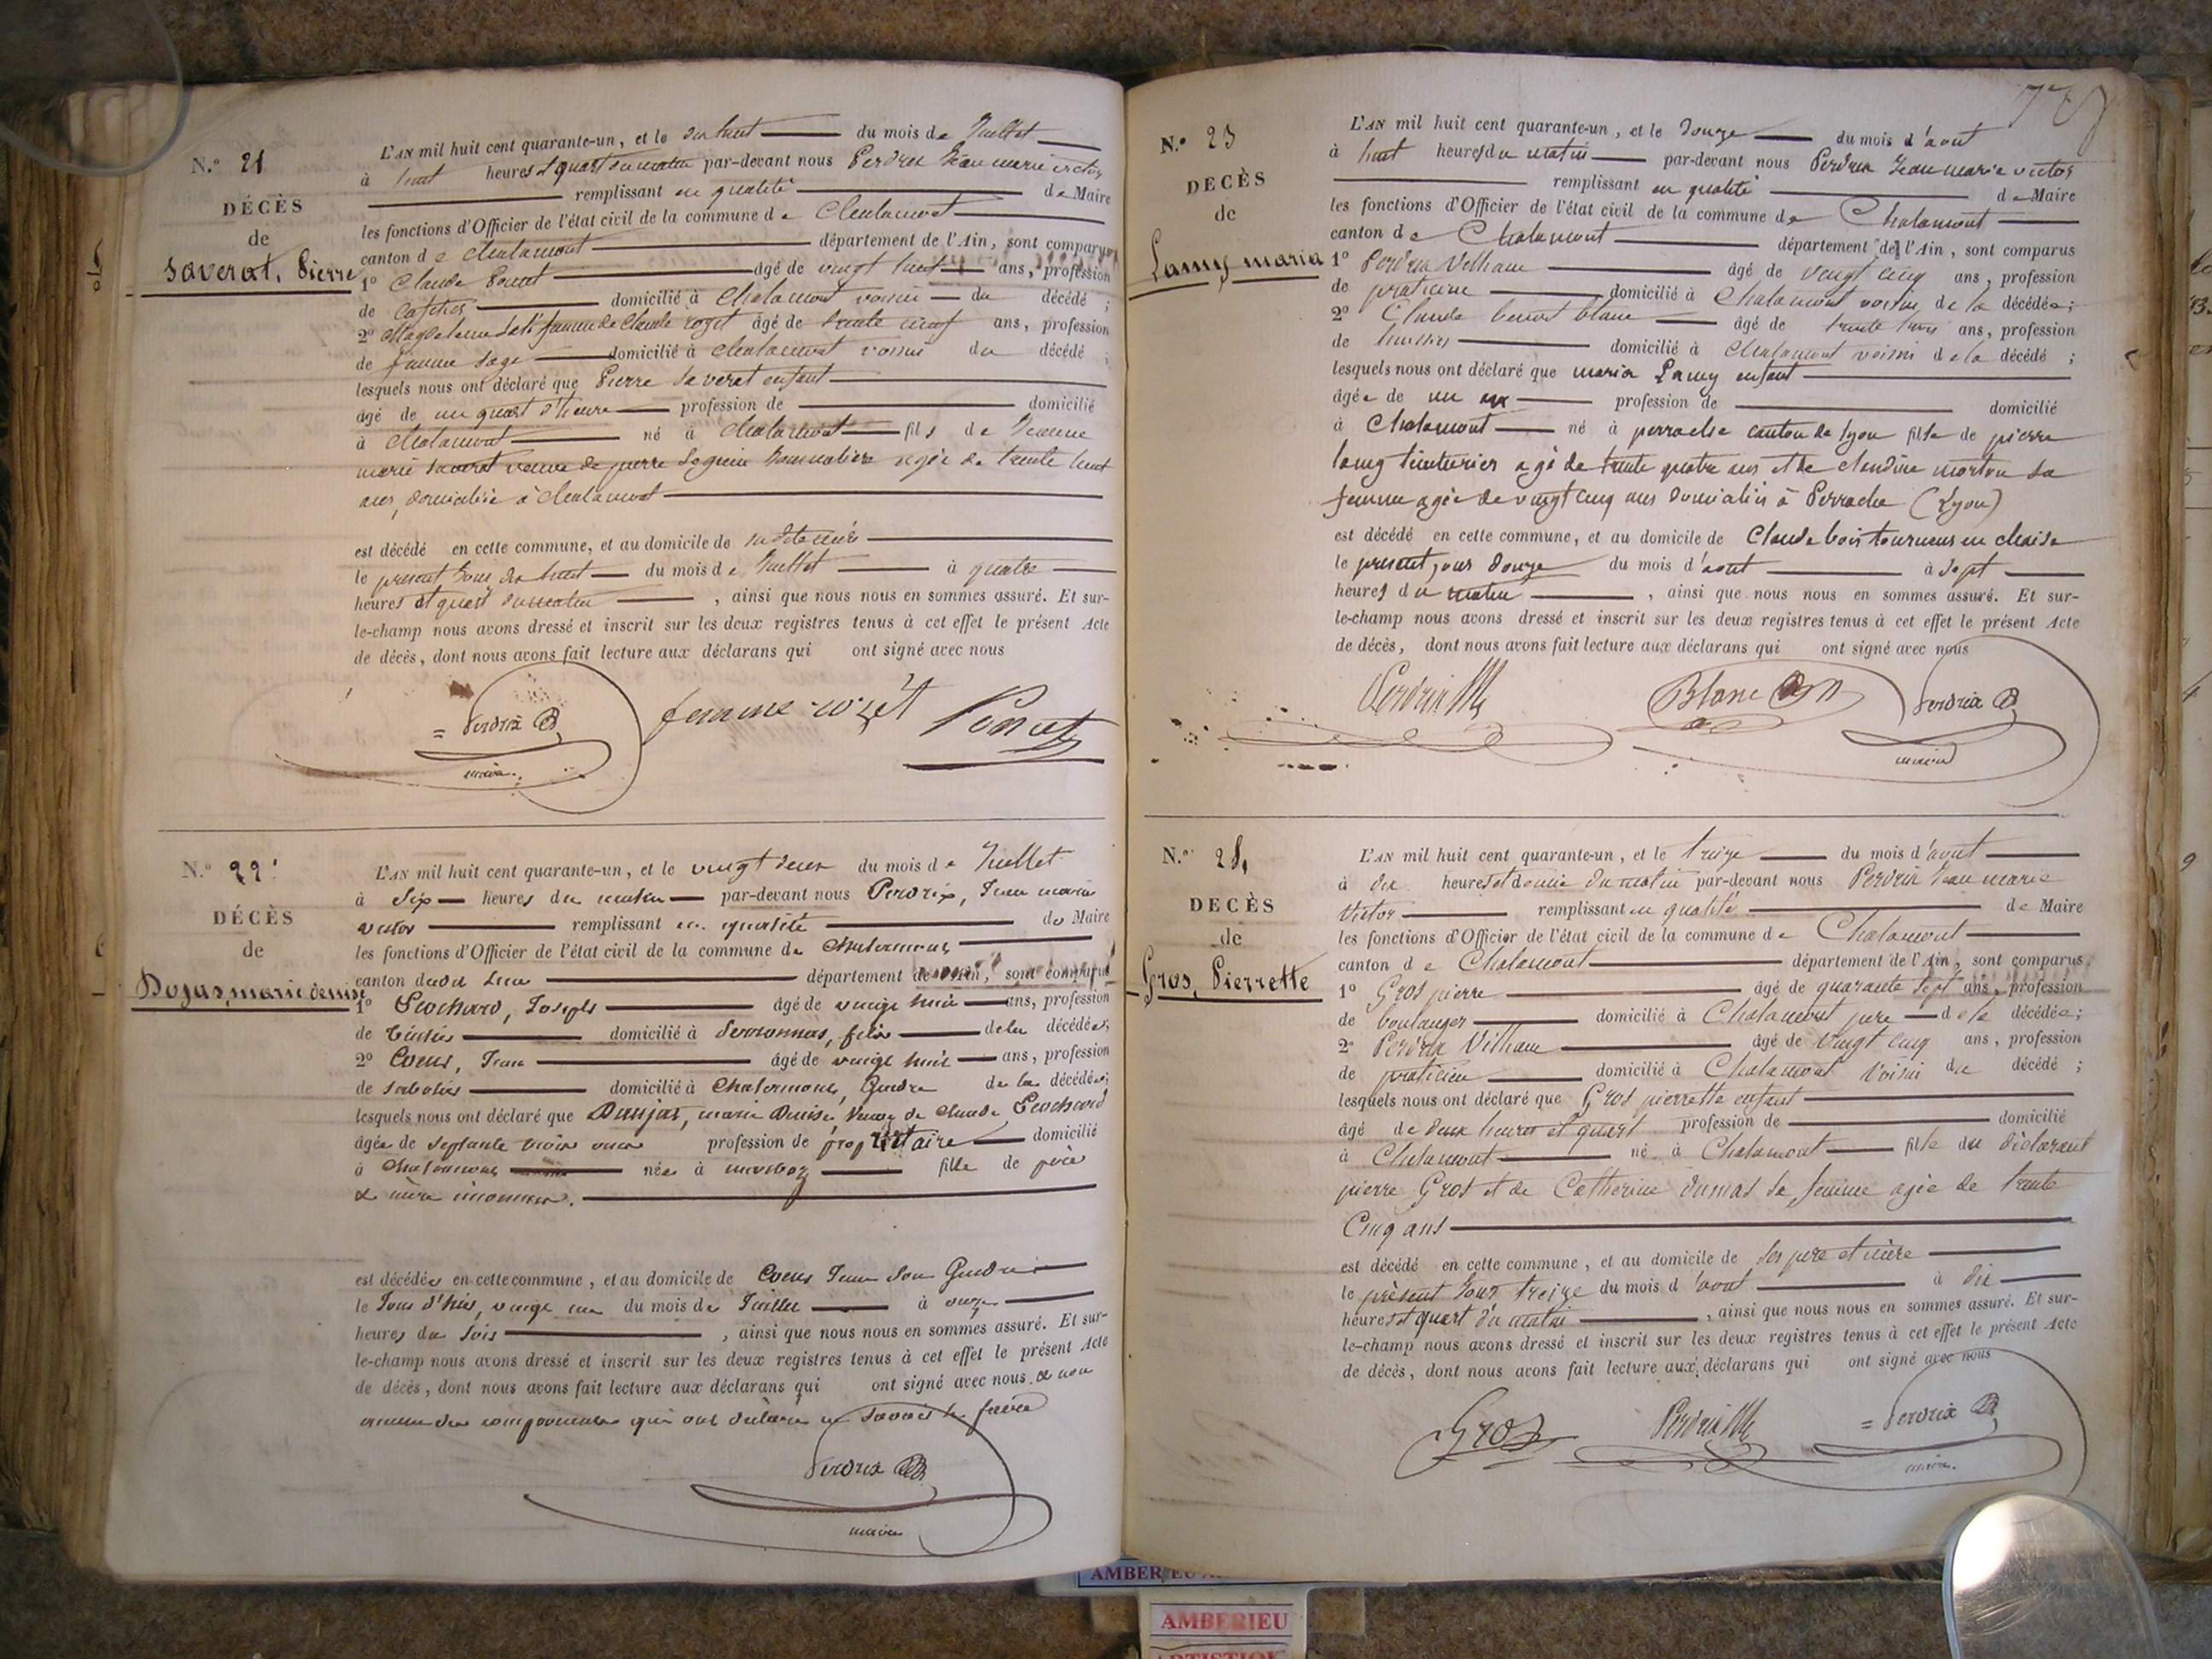 N.° 21
DÉCÈS
de
Saverat, Pierre
L'AN mil huit cent quarante-un, et le dix huit du mois de Juillet
à huit heures et quart du matin par-devant nous Perdrix Jean marie victor
remplissant en qualité de Maire
les fonctions d'Officier de l'état civil de la commune de Chalamont
canton de Chalamont département de l'Ain, sont comparus
1° Claude Poncet âgé de vingt huit ans, profession
de cafetier domicilié à Chalamont voisin du décédé ;
2° Magdelaine femme de Claude rozet âgé de trente neuf ans, profession
de femme sage domicilié à Chalamont voisin du décédé ;
lesquels nous ont déclaré que Pierre Saverat enfant
âgé de un quart d'heure profession de domicilié
à Chalamont né à Chalamont fils de Jeanne
marie Saverat veuve de pierre Seguin Journalière agée de trente huit
ans, domiciliée à Chalamont
est décédé en cette commune, et au domicile de sa dite mère
le présent Jour dix huit du mois de Juillet à quatre
heures et quart du matin , ainsi que nous nous en sommes assuré. Et sur-
le-champ nous avons dressé et inscrit sur les deux registres tenus à cet effet le présent Acte
de décès, dont nous avons fait lecture aux déclarans qui ont signé avec nous
Perdrix femme rozet Poncet
maire
N.° 22
DÉCÈS
de
Dojas, marie denise
L'AN mil huit cent quarante-un, et le vingt deux du mois de Juillet
à Six heures du matin par-devant nous Perdrix, Jean marie
victor remplissant en qualité de Maire
les fonctions d'Officier de l'état civil de la commune de Chalamont
canton dudit lieu département de l'Ain, sont comparus
1° Joseph âgé de vingt huit ans, profession
de domicilié à Servonnas, fils de la décédée;
2° Coeur, Jean âgé de vingt huit ans, profession
de sabotier domicilié à Chalamont, Gendre de la décédée;
lesquels nous ont déclaré que Daujas, marie Denise, Veuve de Claude
âgée de septante trois ans profession de propriétaire domicilié
à Chalamont née à fille de père
& mère inconnus.
est décédée en cette commune, et au domicile de Coeur Jean son Gendre
le Jour d'hier, vingt un du mois de Juillet à onze
heures du soir , ainsi que nous nous en sommes assuré. Et sur-
le-champ nous avons dressé et inscrit sur les deux registres tenus à cet effet le présent Acte
de décès, dont nous avons fait lecture aux déclarans qui ont signé avec nous & non
aucun des comparants qui ont déclaré ne savoir le faire
Perdrix
maire
N.° 23
DECÈS
de
Lamy maria
L'AN mil huit cent quarante-un, et le Douze du mois d'août
à huit heures du matin par-devant nous Perdrix Jean marie victor
remplissant en qualité de Maire
les fonctions d'Officier de l'état civil de la commune de Chalamont
canton de Chalamont département de l'Ain, sont comparus
1° Perdrix Vilhem âgé de vingt cinq ans, profession
de praticien domicilié à Chalamont voisin de la décédée;
2° Claude benoit blanc âgé de trente trois ans, profession
de huissier domicilié à Chalamont voisin de la décédé ;
lesquels nous ont déclaré que maria Lamy enfant
âgée de un an profession de domicilié
à Chalamont né à perrache canton de lyon fille de pierre
lamy teinturier agé de trente quatre ans et de claudine morton sa
femme agée de vingt cinq ans domiciliés à Perrache (Lyon)
est décédé en cette commune, et au domicile de Claude bois tourneur en chaise
le présent jour Douze du mois d'août à sept
heures du matin , ainsi que nous nous en sommes assuré. Et sur-
le-champ nous avons dressé et inscrit sur les deux registres tenus à cet effet le présent Acte
de décès, dont nous avons fait lecture aux déclarans qui ont signé avec nous
Perdrix Blanc Perdrix
maire
N.° 24
DECÈS
de
Gros, Pierrette
L'AN mil huit cent quarante-un, et le treize du mois d'août
à dix heures et demie du matin par-devant nous Perdrix Jean marie
Victor remplissant en qualité de Maire
les fonctions d'Officier de l'état civil de la commune de Chalamont
canton de Chalamont département de l'Ain, sont comparus
1° Gros pierre âgé de quarante sept ans, profession
de boulanger domicilié à Chalamont père de la décédée;
2° Perdrix Vilhem âgé de vingt cinq ans, profession
de praticien domicilié à Chalamont Voisin du décédé ;
lesquels nous ont déclaré que Gros pierrette enfant
âgé de deux heures et quart profession de domicilié
à Chalamont né à Chalamont fille du déclarant
pierre Gros et de Catherine dumas sa femme agée de trente
Cinq ans
est décédé en cette commune, et au domicile de ses père et mère
le présent Jour treize du mois d'août à dix
heures et quart du matin , ainsi que nous nous en sommes assuré. Et sur-
le-champ nous avons dressé et inscrit sur les deux registres tenus à cet effet le présent Acte
de décès, dont nous avons fait lecture aux déclarans qui ont signé avec nous
Gros Perdrix Perdrix
maire
AMBERIEU
AMBERIEU